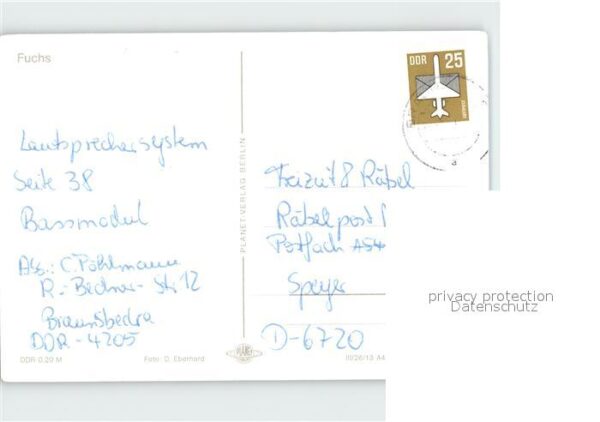 Fuchs
DDR 25
Lautsprechersystem
Seite 38
Bassmodul
Abs.: C. Pöhlmann
R.-Bedner-Str. 12
Braunsbedra
DDR-4205
DDR 0,20 M
Foto: D. Eberhard
PLANET-VERLAG BERLIN
PLANET
III/26/13 A4
8 Räbel
Räbelpost 1
Postfach
Speyer
D-6720
privacy protection
Datenschutz